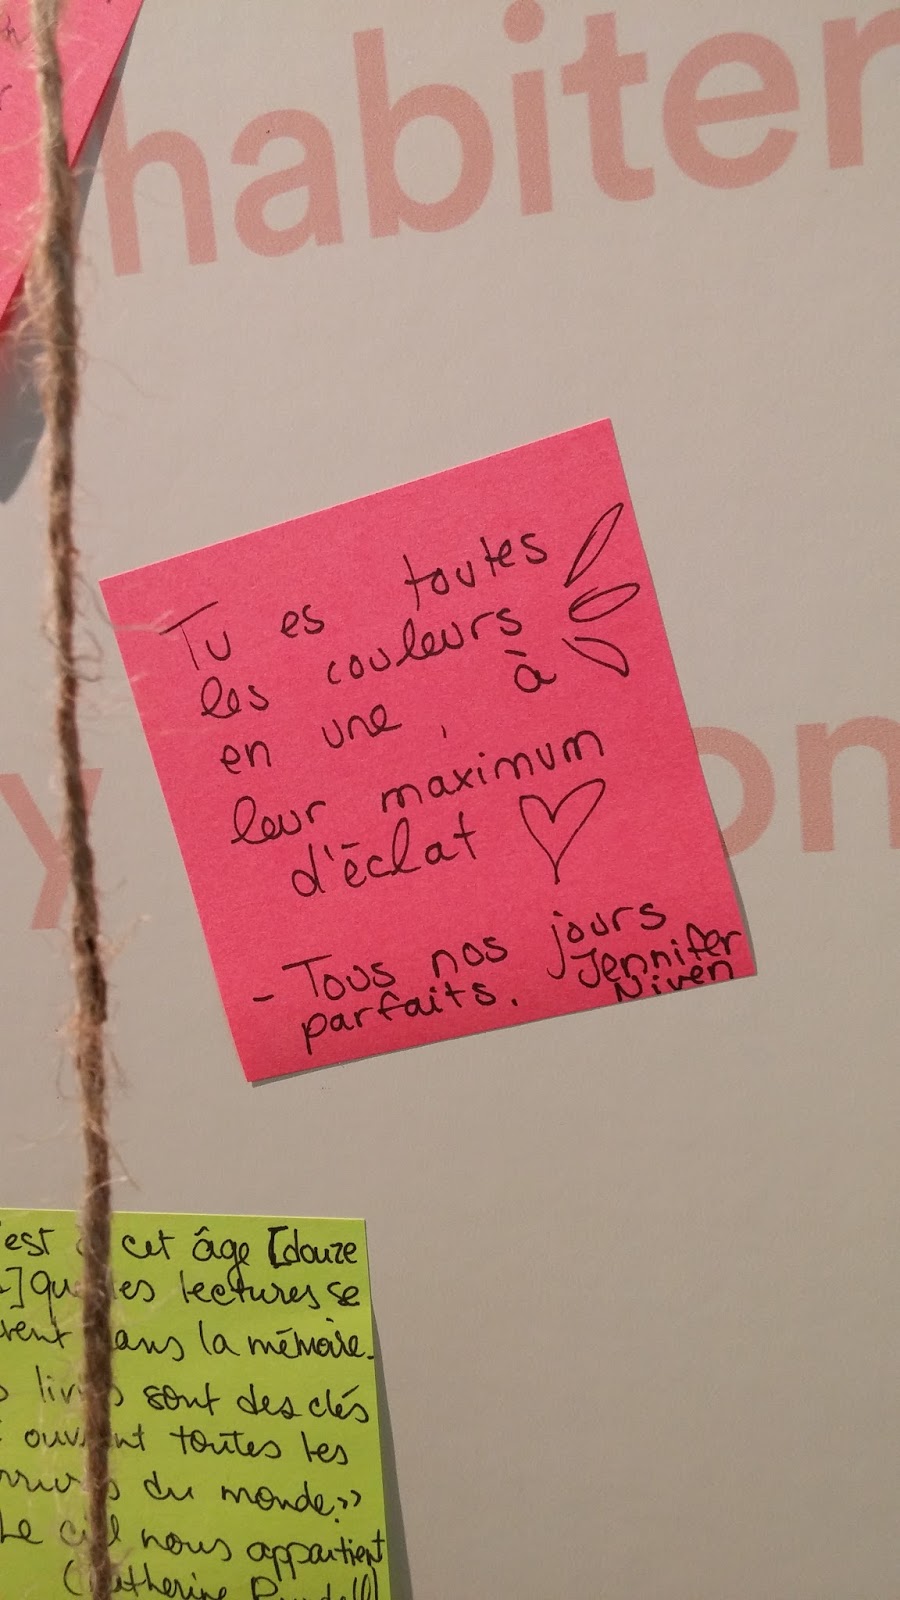 habiter
Tu es toutes
les couleurs
en une, à
leur maximum
d'éclat
- Tous nos jours
parfaits. Jennifer
Niven
y on
est cet âge [douze
] que les lectures se
dans la mémoire.
livres sont des clés
ouvrent toutes les
du monde.>>
Le ciel nous appartient
(Katherine Rundell)